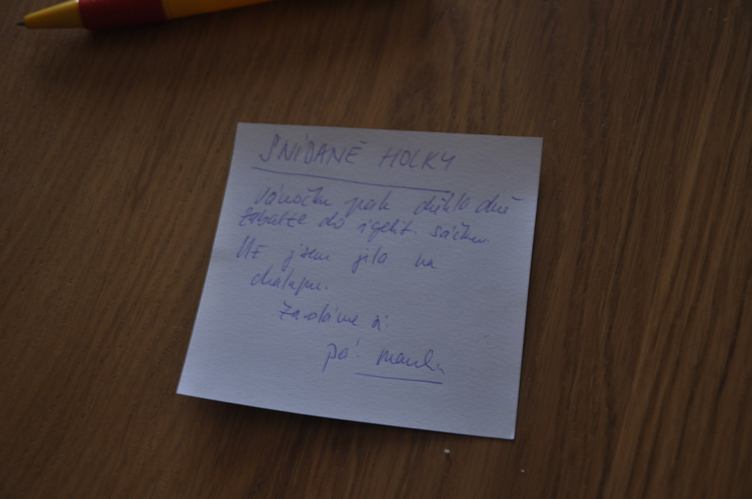 SNÍDANĚ HOLKY
Vánočku pak důkladně
zabalte do igelit. sáčku.
Už jsem jela na
chalupu.
Zavoláme si.
pá